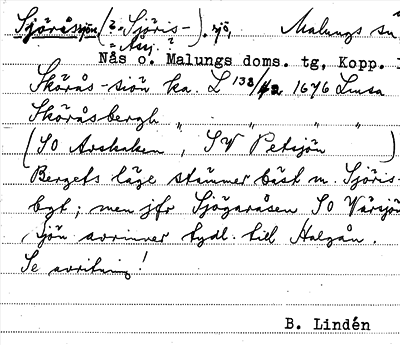 Sjöråssjön (? Sjöris- ). sjö, Malungs sn
åsj. ?
Nås o. Malungs doms. tg, Kopp. l
Skörås-siön ka. L 138/ 1676 Lima
Sköråsbergh " " " "
(SO , SV Petsjön )
Bergets läge stämmer bäst m. Sjöris-
bgt; men jfr Sjögaråsen SO
sjön avrinner tydl. till Halgån.
Se avritning!
B. Lindén